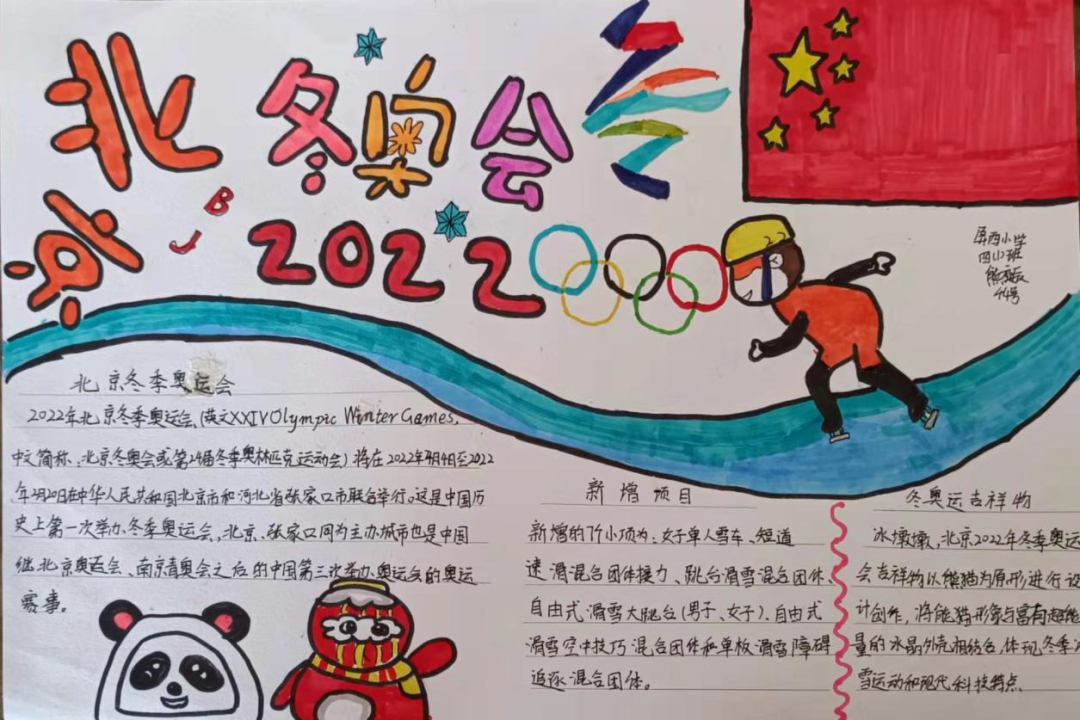 北京
冬奥会
BJ
2022
屏西小学
四(1)班
44号
北京冬季奥运会
2022年北京冬季奥运会,(英文XXIVOlympic Winter Games,
中文简称:北京冬奥会或第24届冬季奥林匹克运动会)将在2022年4月4日至2022
年2月20日在中华人民共和国北京市和河北省张家口市联合举行。这是中国历
史上第一次举办冬季奥运会,北京、张家口同为主办城市也是中国
继北京奥运会、南京青奥会之后的中国第三次举办奥运会的奥运
赛事。
新增项目
新增的7个小项为:女子单人雪车、短道
速滑混合团体接力、跳台滑雪混合团体、
自由式滑雪大跳台(男子、女子)、自由式
滑雪空中技巧混合团体和单板滑雪障碍
追逐混合团体。
冬奥运吉祥物
冰墩墩,北京2022年冬季奥运
会吉祥物以熊猫为原形进行设
计创作,将熊猫形象与富有超能
量的冰晶外壳相结合,体现冬季冰
雪运动和现代科技特点